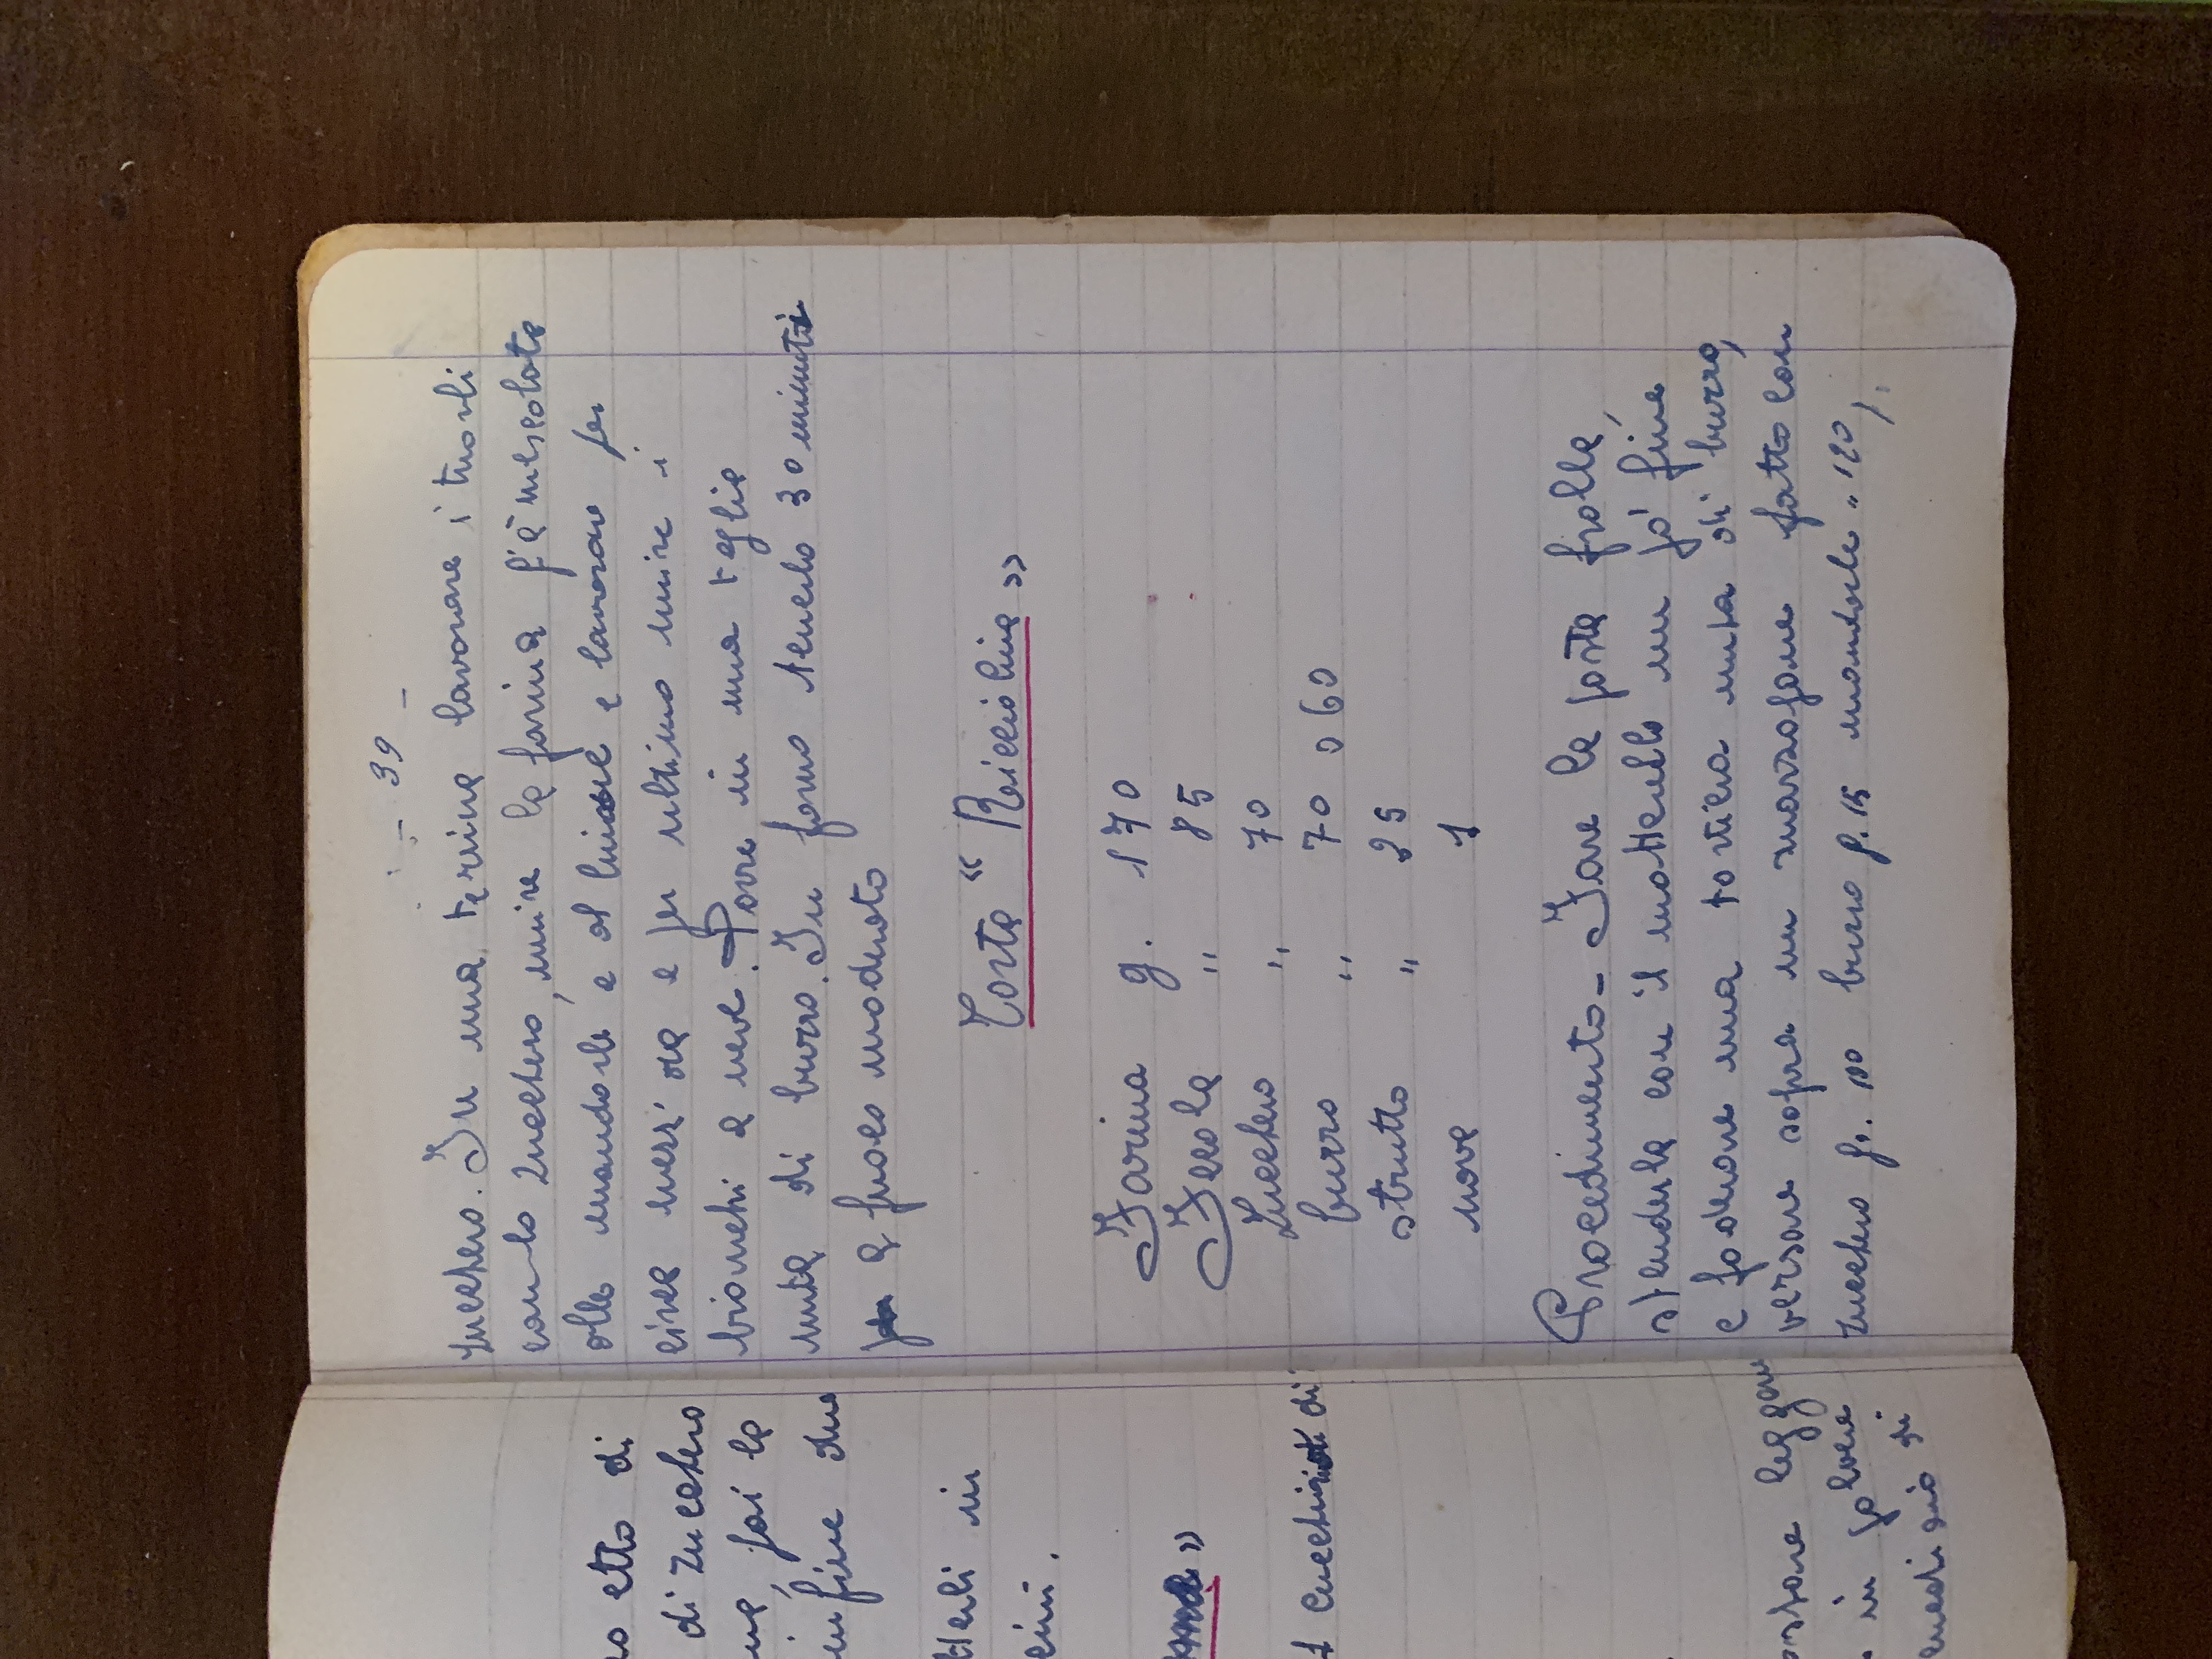 o etto di
di zucchero
, poi la
infine due
terli in
cini.
»
1 cucchiaio di
leggerm
in polvere
di
- 39 -
zucchero. In una terrina lavorare i tuorli
con lo zucchero, unire la farina già mescolata
alle mandorle e al limone e lavorare per
circa mezz'ora e per ultimo unire i
bianchi a neve. Porre in una teglia
unta di burro. In forno tenerlo 30 minuti
a fuoco moderato
Torta "Ricciolina»
Farina g. 170
Fecola " 85
Zucchero " 70
burro " 70 o 60
strutto " 25
uova 1
Procedimento - Fare la pasta frolla,
stenderla con il matterello un po' fine
e foderare una tortiera unta di burro,
versare sopra un marzapane fatto con
zucchero gr. 100 burro g. 15 mandorle " 120,